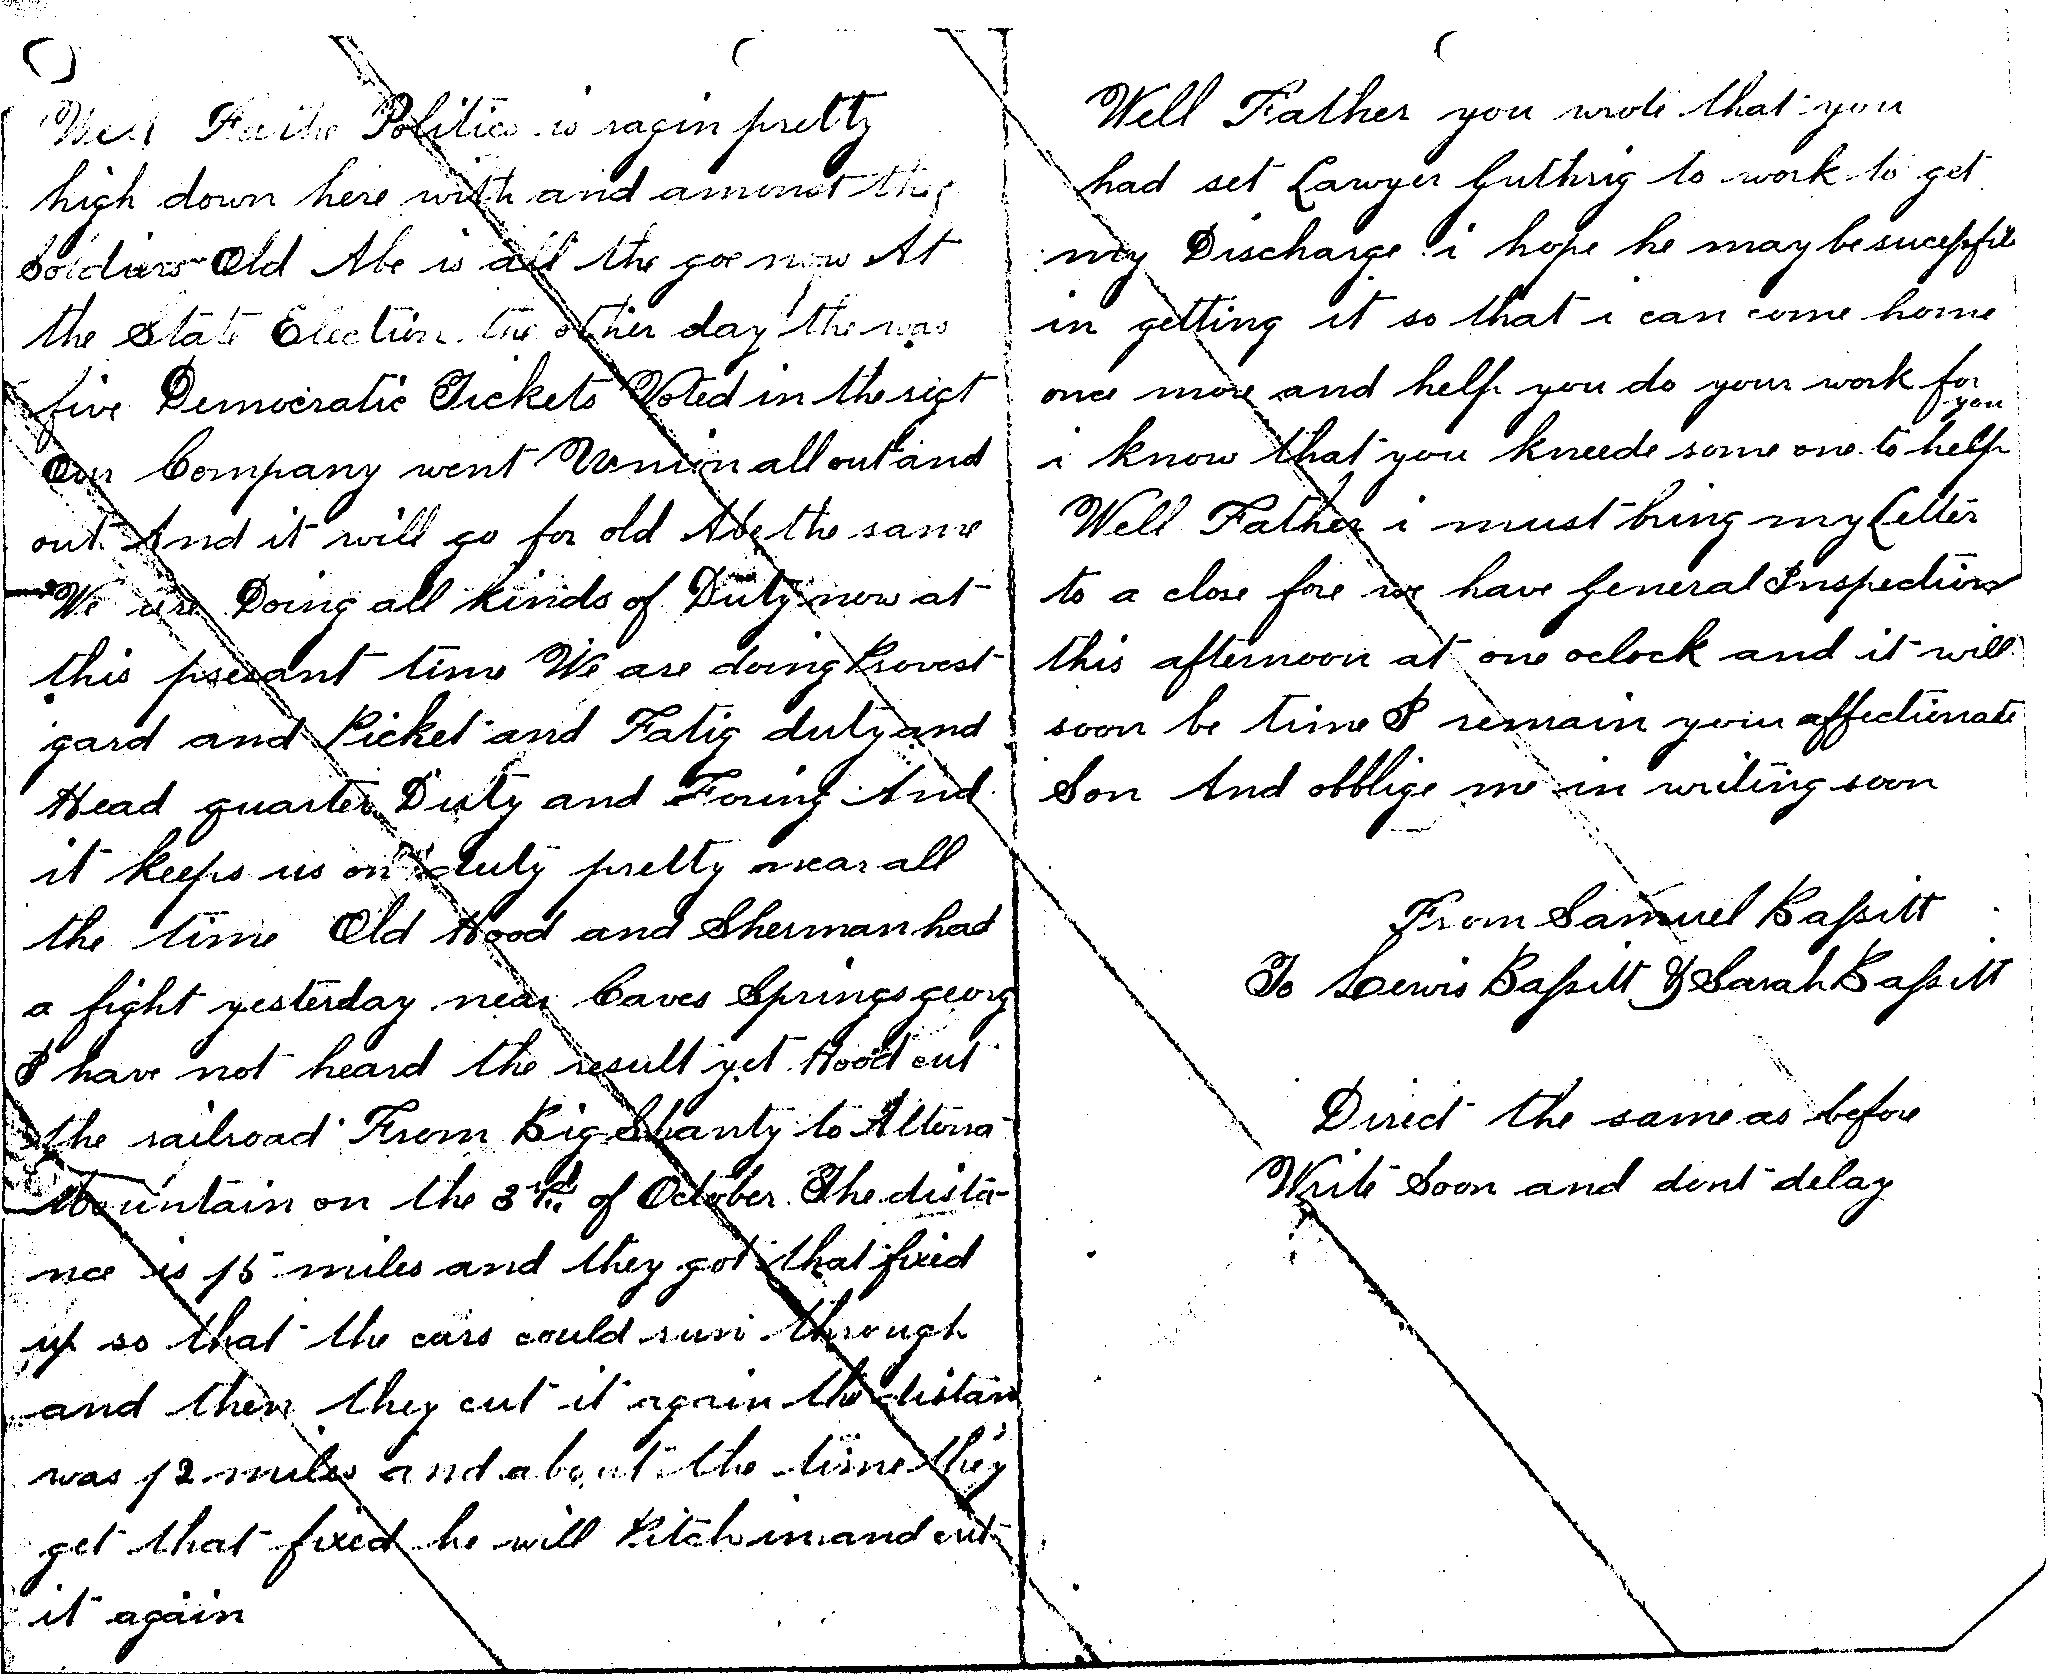 Well Father Politics is ragin pretty
high down here with and amonst the
Soldiers Old Abe is all the goe now At
the State Election the other day the was
five Democratic Tickets Voted in the rigt
Our Company went Union all out and
out And it will go for old Abe the same
We are Doing all kinds of Duty now at
this presant time We are doing Provest
gard and Picket and Fatig duty and
Head quarter Duty and Foring And
it keeps us on duty pretty near all
the time Old Hood and Sherman had
a fight yesterday near Caves Springs georg
I have not heard the result yet Hood cut
the railroad From Big Shanty to Altona
Mountain on the 3rd of October The dista-
nce is 15 miles and they got that fixed
up so that the cars could run through
and then they cut it again the distan
was 12 miles and about the time they
get that fixed he will Pitch in and cut
it again
Well Father you wrote that you
had set Lawyer Guthrig to work to get
my Discharge i hope he may be sucessful
in getting it so that i can come home
once more and help you do your work for
you
i know that you kneede some one to help
Well Father i must bring my Letter
to a close fore we have General Inspection
this afternoon at one oclock and it will
soon be time I remain your affectionate
Son And obblige me in writing soon
From Samuel Bassitt
To Lewis Bassitt & Sarah Bassitt
Direct the same as before
Write Soon and dont delay